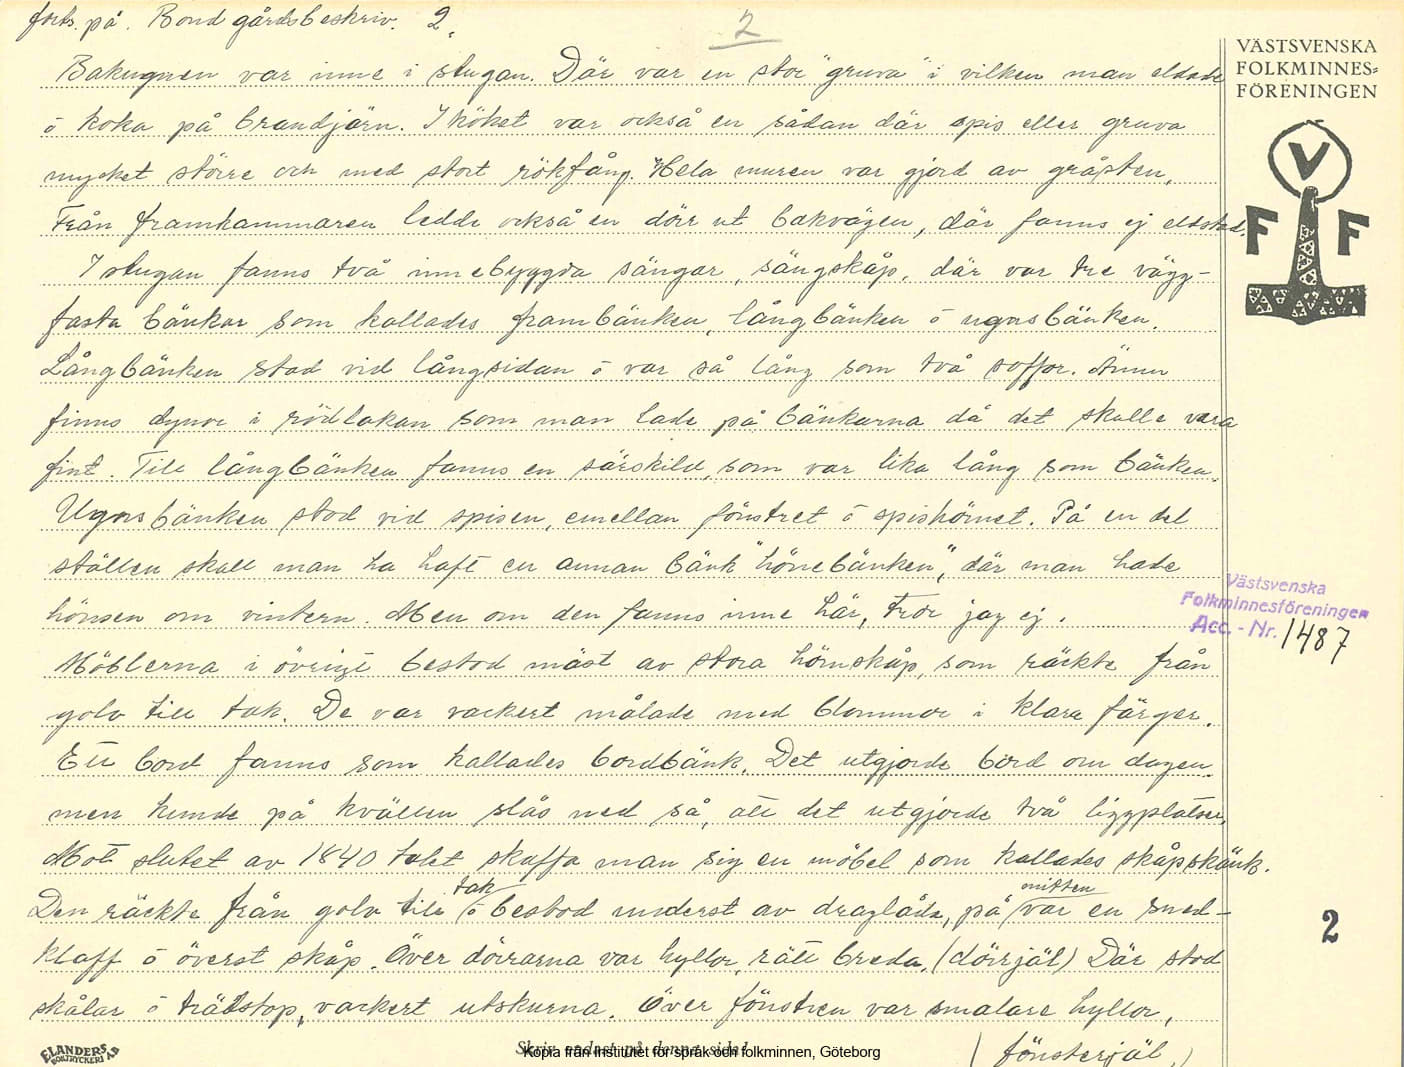 forts. på. Bondgårdsbeskriv. 2.
2
Bakugnen var inne i stugan. Där var en stor "gruva" i vilken man eldade
ō koka på brandjärn. I köket var också en sådan där spis eller gruva
mycket större och med stort rökfång. Hela muren var gjord av gråsten,
Från framkammaren ledde också en dörr ut bakvägen, där fanns ej eldstad.
I stugan fanns två innebyggda sängar, sängskåp, där var tre vägg-
fasta bänkar som kallades frambänken, långbänken ō ugnsbänken.
Långbänken stod vid långsidan ō var så lång som två soffor. Ännu
finns dynor i rödlakan som man lade på bänkarna då det skulle vara
fint. Till långbänken fanns en särskild, som var lika lång som bänken.
Ugnsbänken stod vid spisen, emellan fönstret ō spishörnet. På en del
ställen skall man ha haft en annan bänk "hönebänken", där man hade
hönsen om vintern. Men om den fanns inne här, tror jag ej.
Möblerna i övrigt bestod mäst av stora hörnskåp, som räckte från
golv till tak. De var vackert målade med blommor i klara färger.
Ett bord fanns som kallades bordbänk. Det utgjorde bord om dagen
men kunde på kvällen slås ned så, att det utgjorde två liggplatser,
Mot slutet av 1840 talet skaffa man sig en möbel som kallades skåpskänk.
Den räckte från golv till tak ō bestod underst av draglåda, på mitten var en sned-
klaff ō överst skåp. Över dörrarna var hyllor, rätt breda, (dörrjäl) Där stod
skålar ō trätstop, vackert utskurna. Över fönstren var smalare hyllor,
(fönsterjäl,)
VÄSTSVENSKA
FOLKMINNES=
FÖRENINGEN
V
F F
Västsvenska
Folkminnesföreningen
Acc. - Nr. 1487
2
ELANDERS
BOKTRYCKERI AB
Skriv endast på denna sida!
Kopia från Institutet för språk och folkminnen, Göteborg